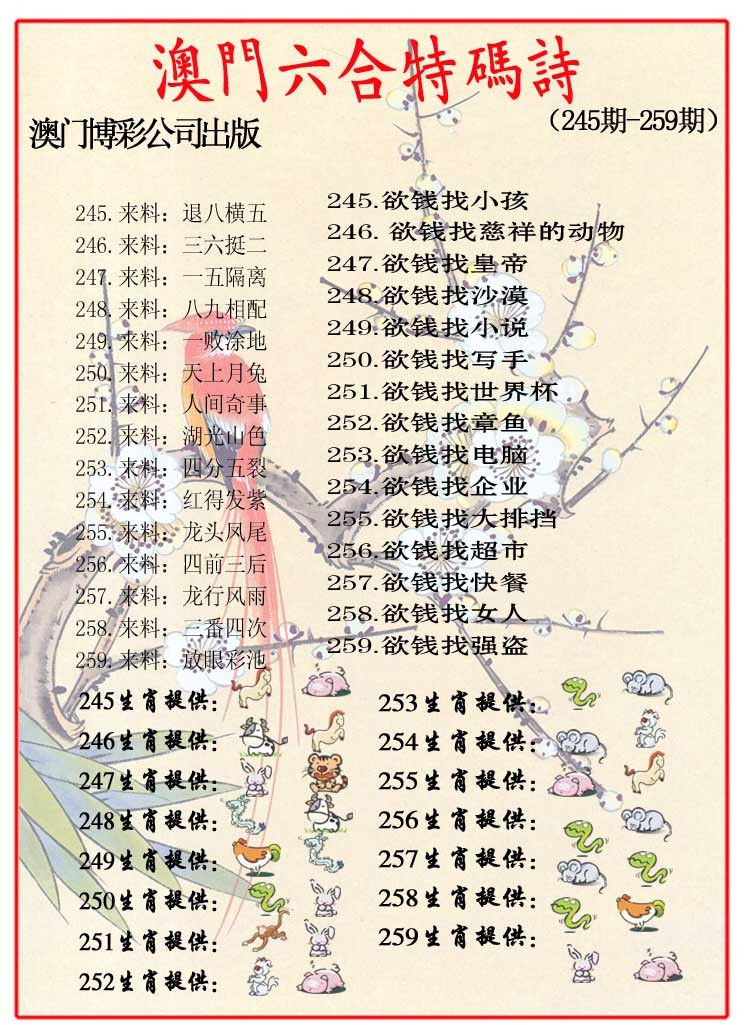 澳門六合特碼詩
澳门博彩公司出版
（245期-259期）
245.来料：退八横五
246.来料：三六挺二
247.来料：一五隔离
248.来料：八九相配
249.来料：一败涂地
250.来料：天上月兔
251.来料：人间奇事
252.来料：湖光山色
253.来料：四分五裂
254.来料：红得发紫
255.来料：龙头风尾
256.来料：四前三后
257.来料：龙行风雨
258.来料：三番四次
259.来料：放眼彩池
245.欲钱找小孩
246. 欲钱找慈祥的动物
247.欲钱找皇帝
248.欲钱找沙漠
249.欲钱找小说
250.欲钱找写手
251.欲钱找世界杯
252.欲钱找章鱼
253.欲钱找电脑
254.欲钱找企业
255.欲钱找大排挡
256.欲钱找超市
257.欲钱找快餐
258.欲钱找女人
259.欲钱找强盗
245生肖提供：
246生肖提供：
247生肖提供：
248生肖提供：
249生肖提供：
250生肖提供：
251生肖提供：
252生肖提供：
253生肖提供：
254生肖提供：
255生肖提供：
256生肖提供：
257生肖提供：
258生肖提供：
259生肖提供：